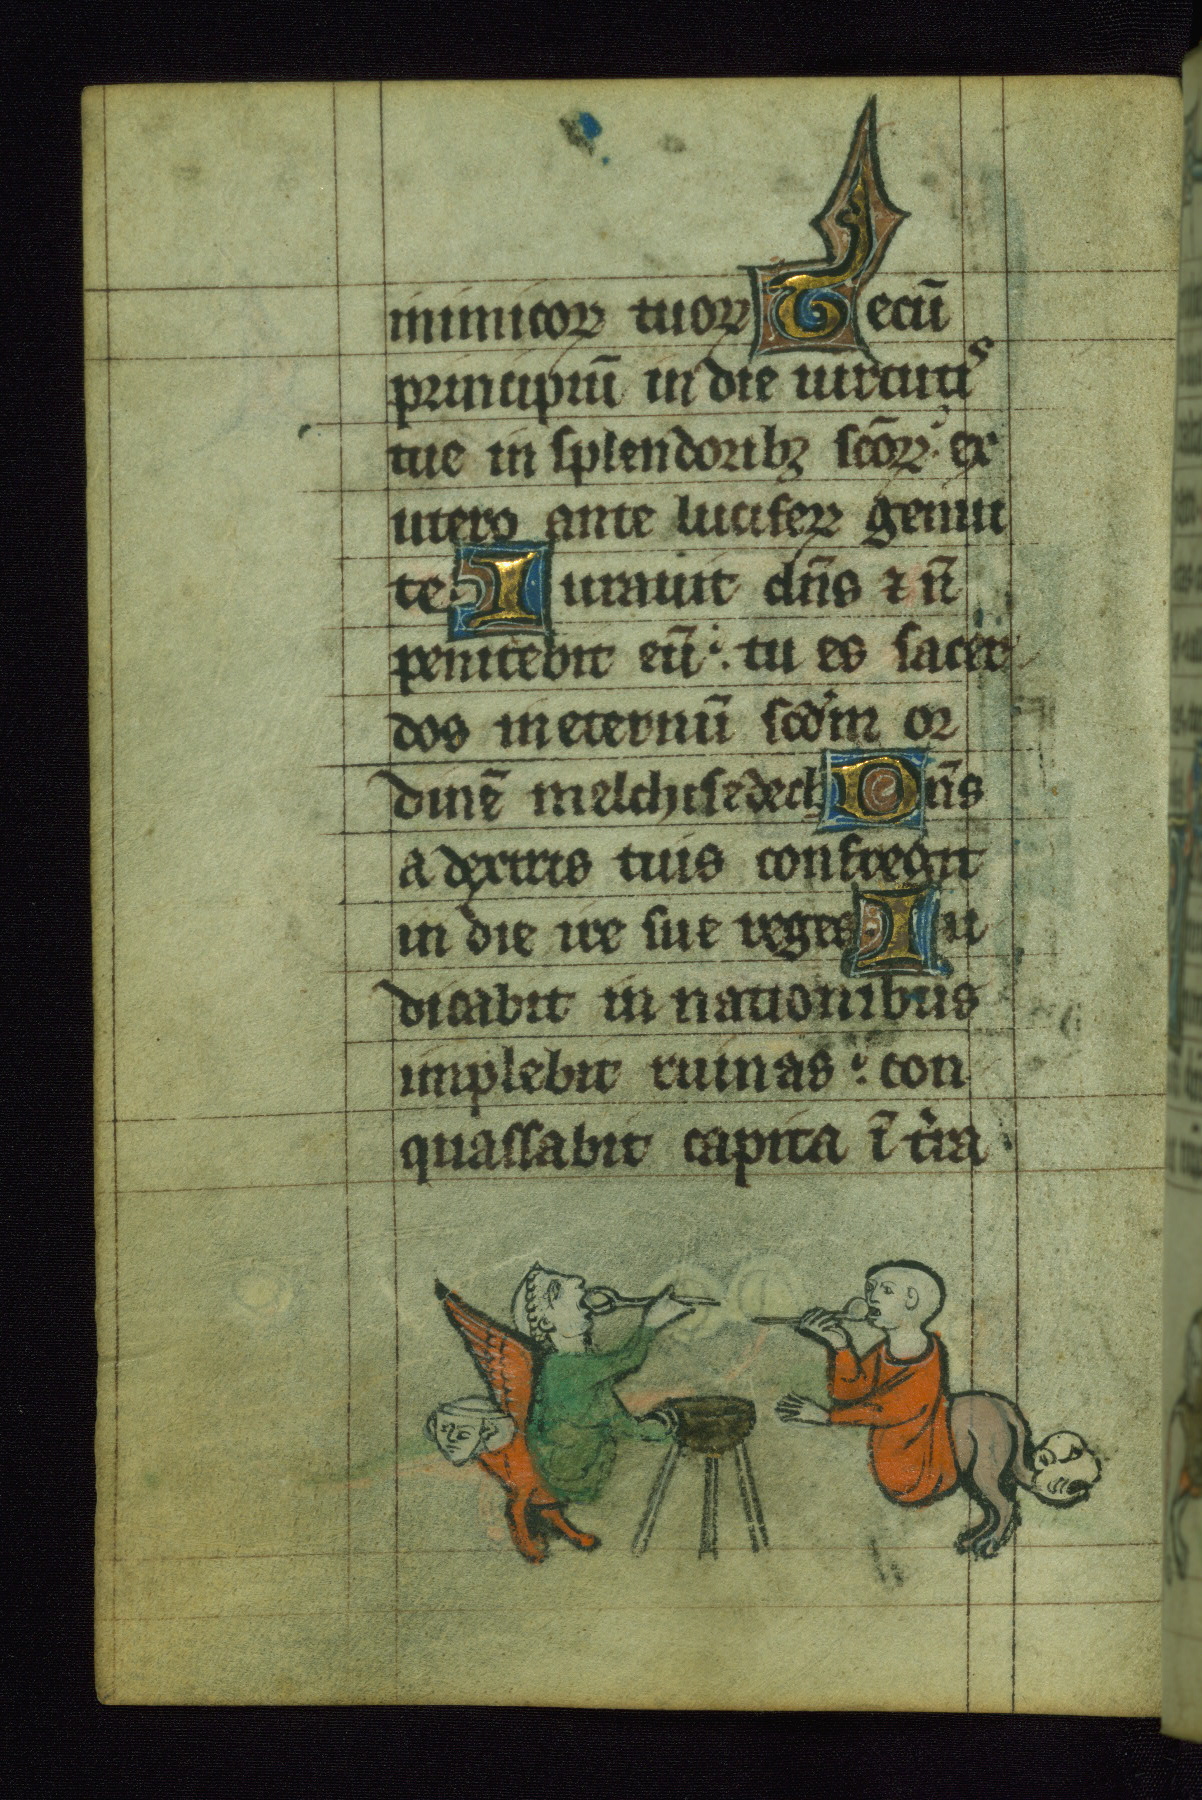 inimicoꝝ tuoꝝ Tecū
principiū in die uirtutis
tue in splendoribꝫ scōꝝ ex
utero ante lucifeꝝ genui
te Iurauit dn̄s ⁊ n̄
penitebit eū tu es sacer
dos in eternū scd'm or
dinē melchisedech Dn̄s
a dextris tuis confregit
in die ire sue reges Iu
dicabit in nationibus
implebit ruinas con
quassabit capita ī t'ra